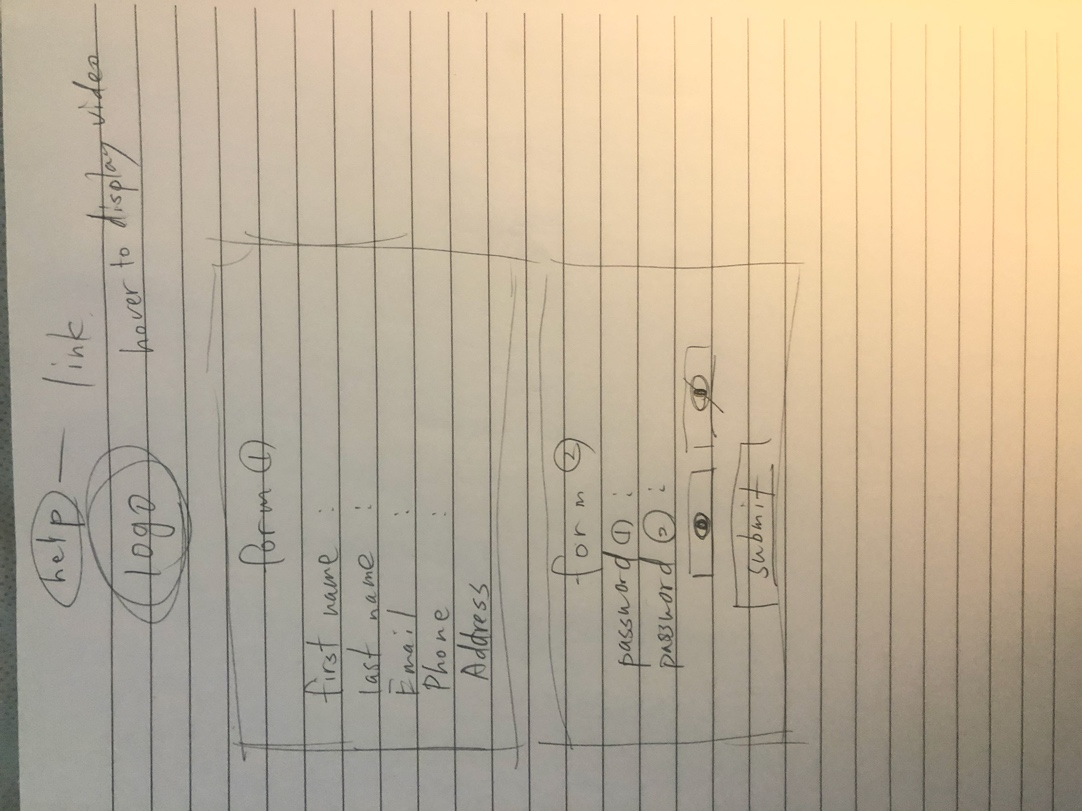 help — link
logo hover to display video
form ①
first name :
last name :
Email :
Phone :
Address
form ②
password ① :
password ② :
submit